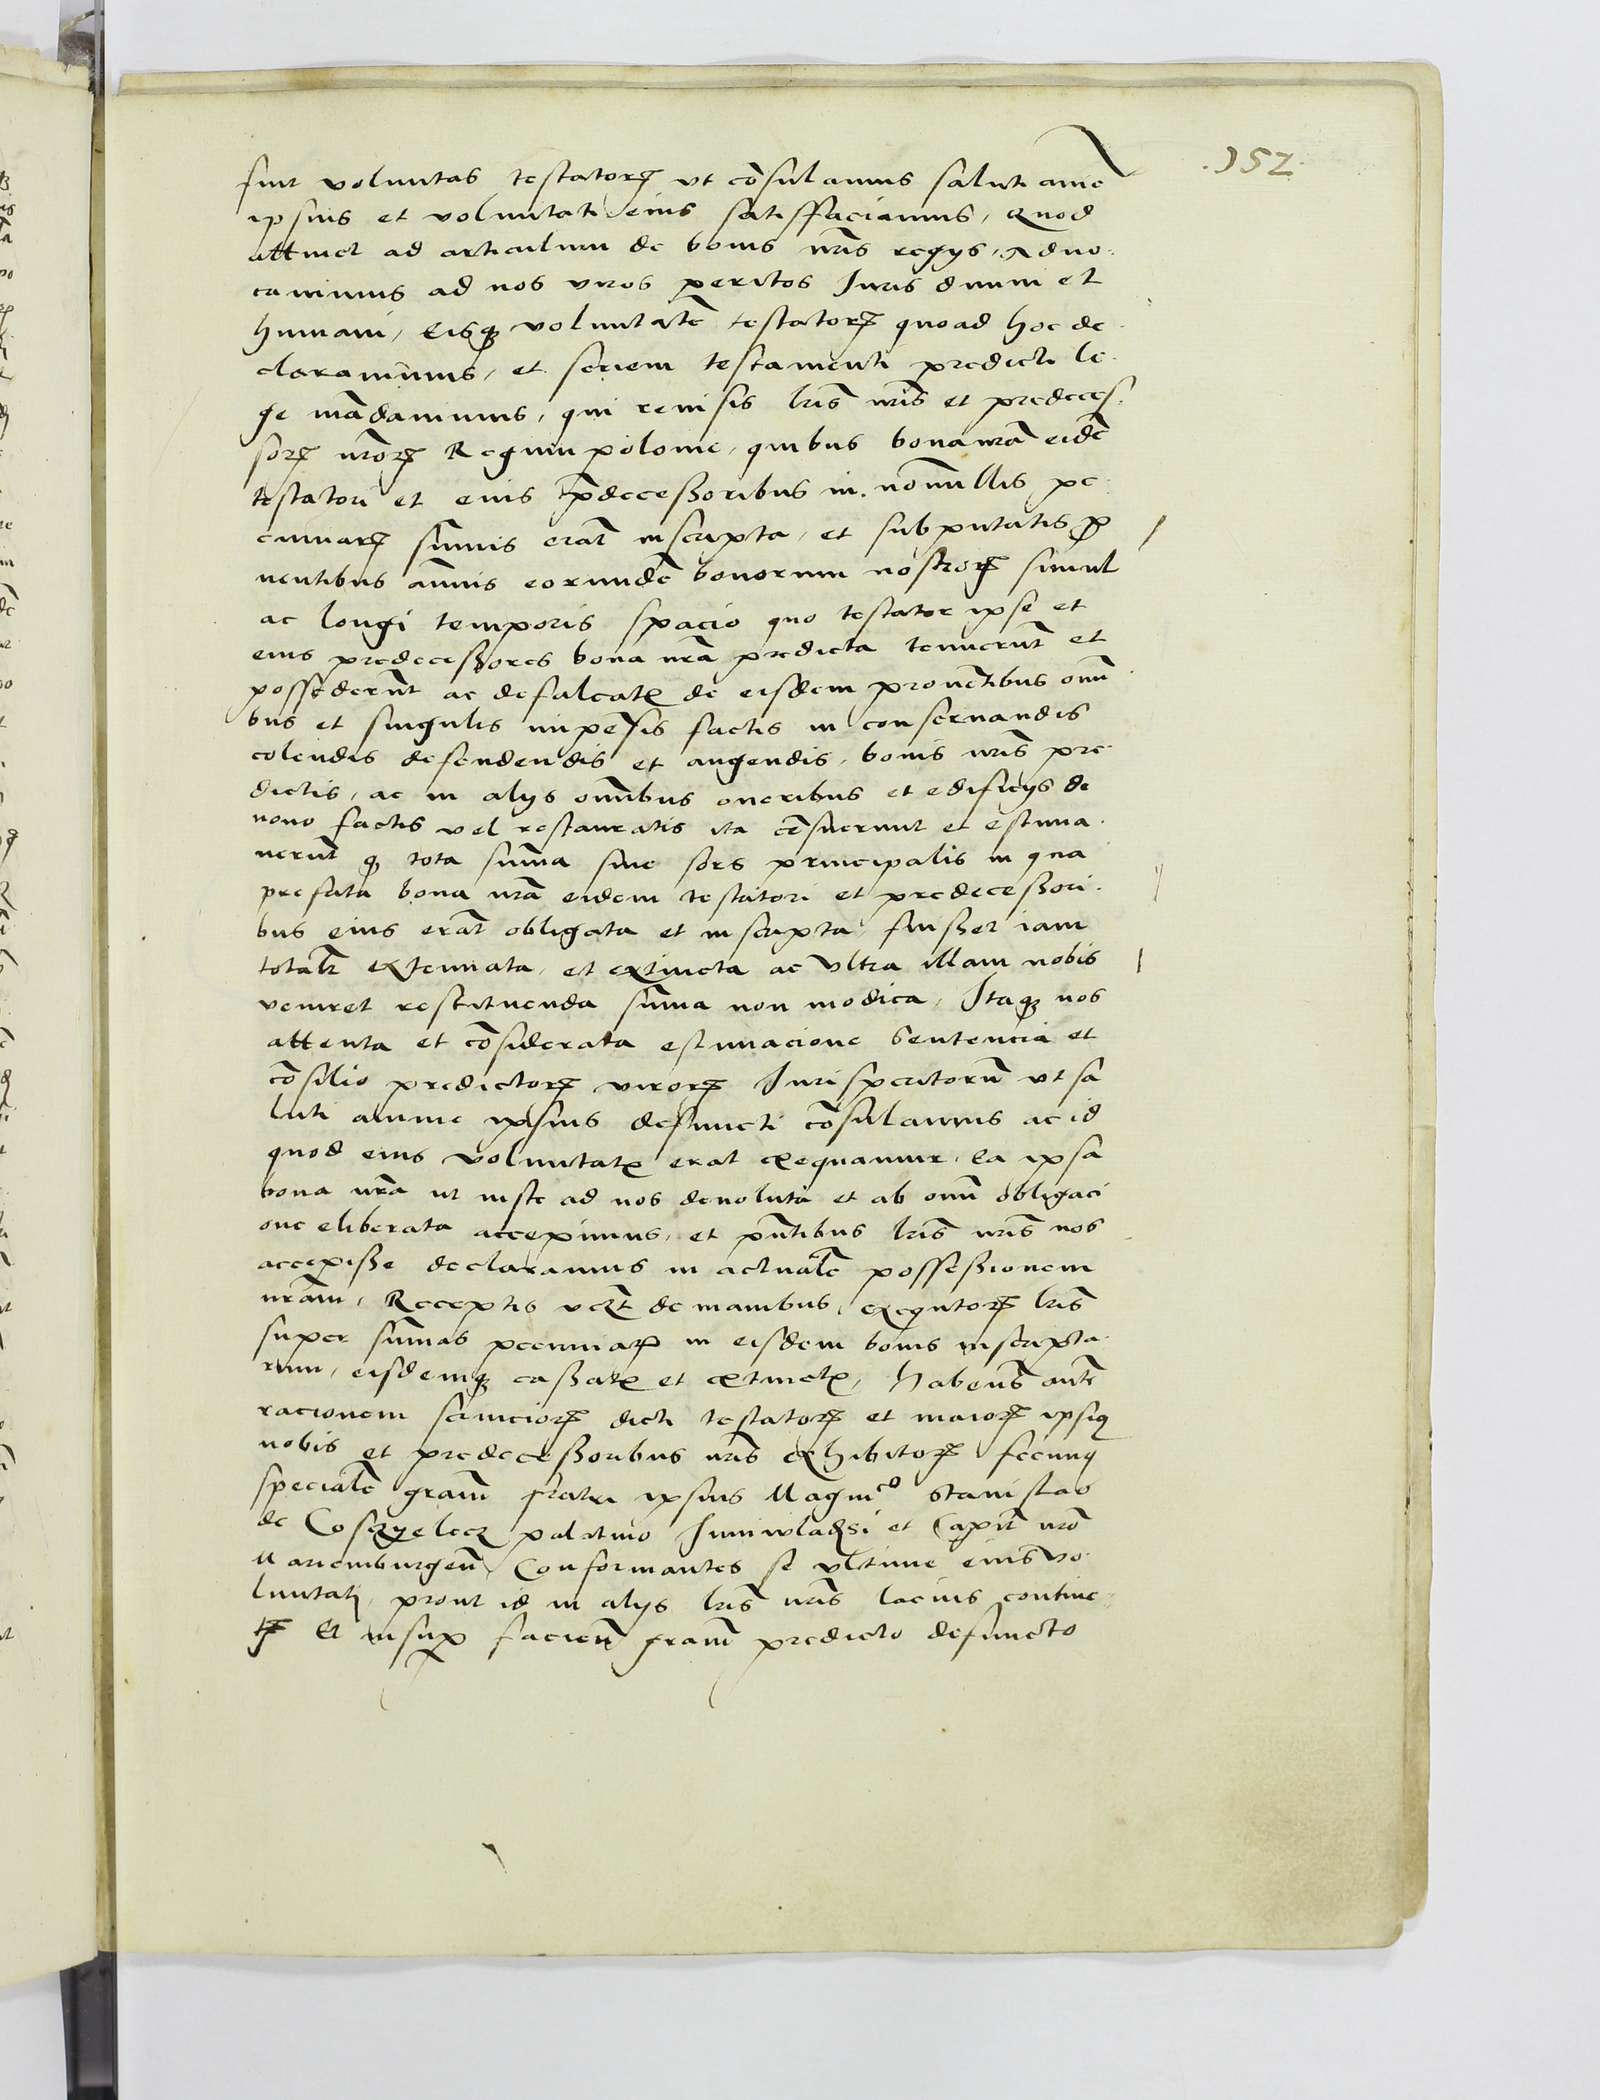 .152.
sint voluntas testatorꝭ vt cōsulamus saluti aīe
ipsius et voluntati eius satisffaciamus, Quod
attinet ad articulum de bonis nr̄is regijs, Aduo-
cauimus ad nos viros peritos Iuris diuini et
humani, Eisqꝫ voluntatē testatorꝭ quoad hoc de-
clarauimus, et seriem testamenti predicti le-
ge mādauimus, qui reuisis lr̄is nr̄is et predeces-
sorꝝ nr̄orꝝ Regum polonie, quibus bona nr̄a eidē
testatori et eius p̄decessoribus in nōnullis pe-
cuniarꝝ sum̄is erāt inscripta, et subputatis ꝓ
uentibus an̄uis eorundē bonorum nostrorꝝ simul
ac longi temporis spacio quo testator ipse et
eius predecessores bona nr̄a predicta tenuerūt et
possederūt ac defalcatꝭ de eisdem prouētibus om̄i
bus et singulis impēsis factis in conseruandis
colendis defendendis et augendis, bonis nr̄is pre-
dictis, ac in alijs om̄ibus oneribus et edificijs de
nouo factis vel restauratis ita cēsuerunt et estima-
uerūt qꝫ tota sum̄a siue sors principalis in qua
prefata bona nr̄a eidem testatori et predecessori-
bus eius erāt obligata et inscripta, fuisset iam
totalr̄ extenuata, et extincta ac vltra illam nobis
veniret restituenda sum̄a non modica, Itaqꝫ nos
attenta et cōsiderata estimacione Sentencia et
cōsilio predictorꝝ virorꝝ Iurisperitorū vt sa
luti anime ipsius defuncti cōsulamus ac id
quod eius voluntatꝭ erat exequamur, Ea ipsa
bona nr̄a ut iuste ad nos deuoluta et ab om̄i obligaci
one eliberata accepimus, et pn̄tibus lr̄is nr̄is nos
accepisse declaramus in actualē possessionem
nr̄am, Receptis de manibus exequtorꝝ lr̄is
super sum̄as pecuniarꝝ in eisdem bonis inscripta-
rum, eisdemqꝫ cassatꝭ et extinctꝭ, Haben̄s aūt
racionem seruiciorꝝ dicti testatorꝭ et maiorꝝ ipsiꝰ
nobis et predecessoribus nr̄is exhibitorꝝ fecimꝰ
specialē gr̄am fratri ipsius Magnico Stanislao
de Coszyelecz palatino Iuniwladsi et Capit nr̄o
Mariemburgen̄, Conformantes se vltime eius vo-
luntati, prout id in alijs lr̄is nr̄is lacius contine-
tꝭ Et insuꝑ facien̄ gr̄am predicto defuncto